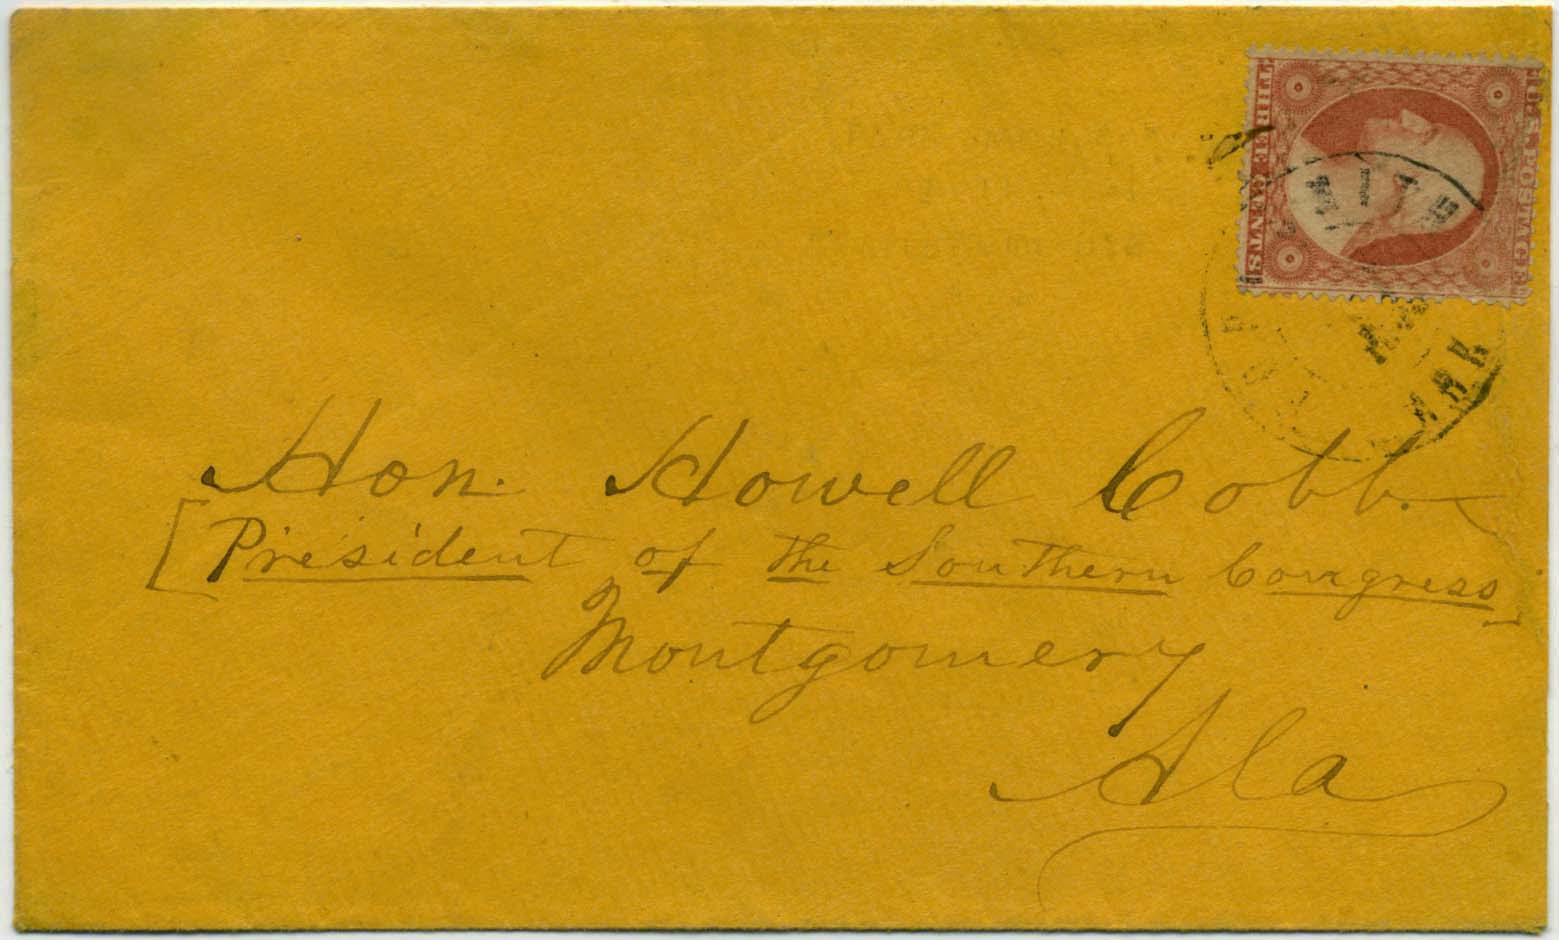 U.S. POSTAGE
THREE CENTS
Hon. Howell Cobb.
[President of the Southern Congress]
Montgomery
Ala